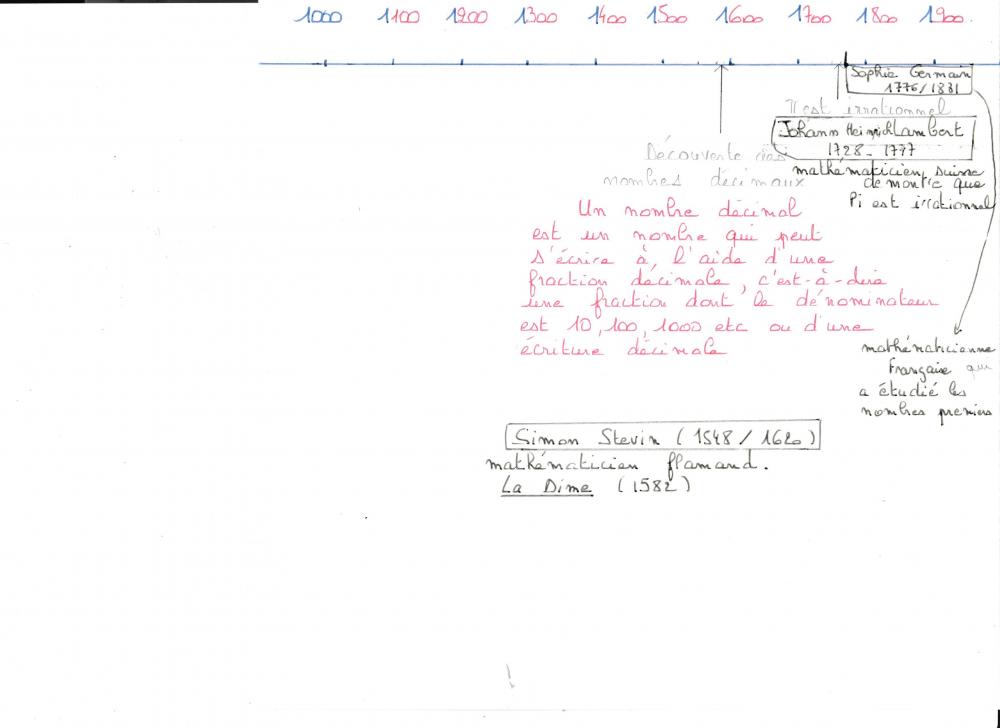 1000 1100 1200 1300 1400 1500 1600 1700 1800 1900
Sophie Germain
1776/1831
π est irrationnel
Johann Heinrich Lambert
1728 - 1777
mathématicien suisse
démontre que
Pi est irrationnel
Découverte des
nombres décimaux
Un nombre décimal
est un nombre qui peut
s'écrire à l'aide d'une
fraction décimale, c'est-à-dire
une fraction dont le dénominateur
est 10, 100, 1000 etc ou d'une
écriture décimale
mathématicienne
Française qui
a étudié les
nombres premiers
Simon Stevin (1548 / 1620)
mathématicien flamand.
La Dime (1582)